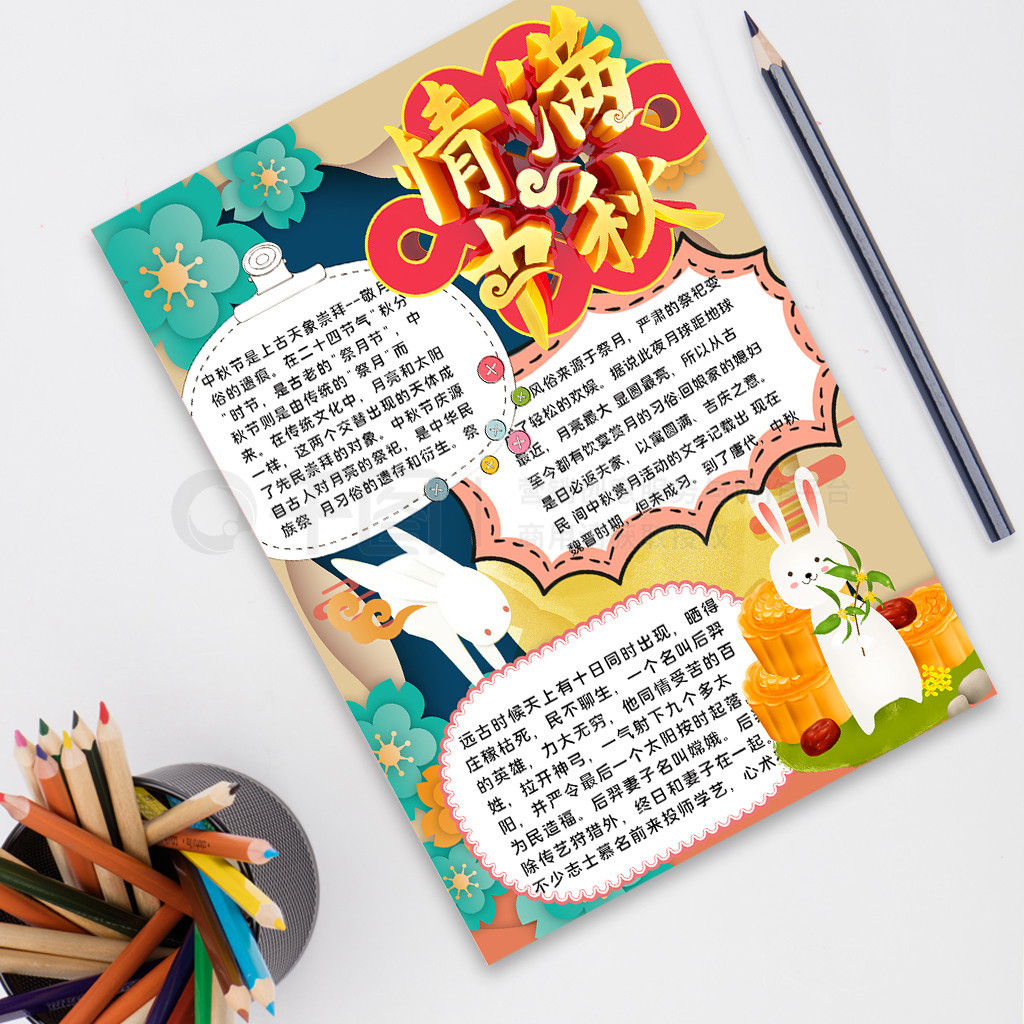 情满
中秋
中秋节是上古天象崇拜--敬月
俗的遗痕。在二十四节气"秋分
"时节，是古老的"祭月节"，中
秋节则是由传统的"祭月"而
来。在传统文化中，月亮和太阳
一样，这两个交替出现的天体成
了先民崇拜的对象。中秋节庆源
自古人对月亮的祭祀，是中华民
族祭 月习俗的遗存和衍生。祭
风俗来源于祭月，严肃的祭祀变
了轻松的欢娱。据说此夜月球距地球
最近，月亮最大 显圆最亮，所以从古
至今都有饮宴赏月的习俗;回娘家的媳妇
是日必返夫家，以寓圆满、吉庆之意。
民 间中秋赏月活动的文字记载出 现在
魏晋时期，但未成习。到了唐代，中秋
远古时候天上有十日同时出现，晒得
庄稼枯死，民不聊生，一个名叫后羿
的英雄，力大无穷，他同情受苦的百
姓，拉开神弓，一气射下九个多太
阳，并严令最后一个太阳按时起落
为民造福。后羿妻子名叫嫦娥。后
除传艺狩猎外，终日和妻子在一起。
不少志士慕名前来投师学艺，心术